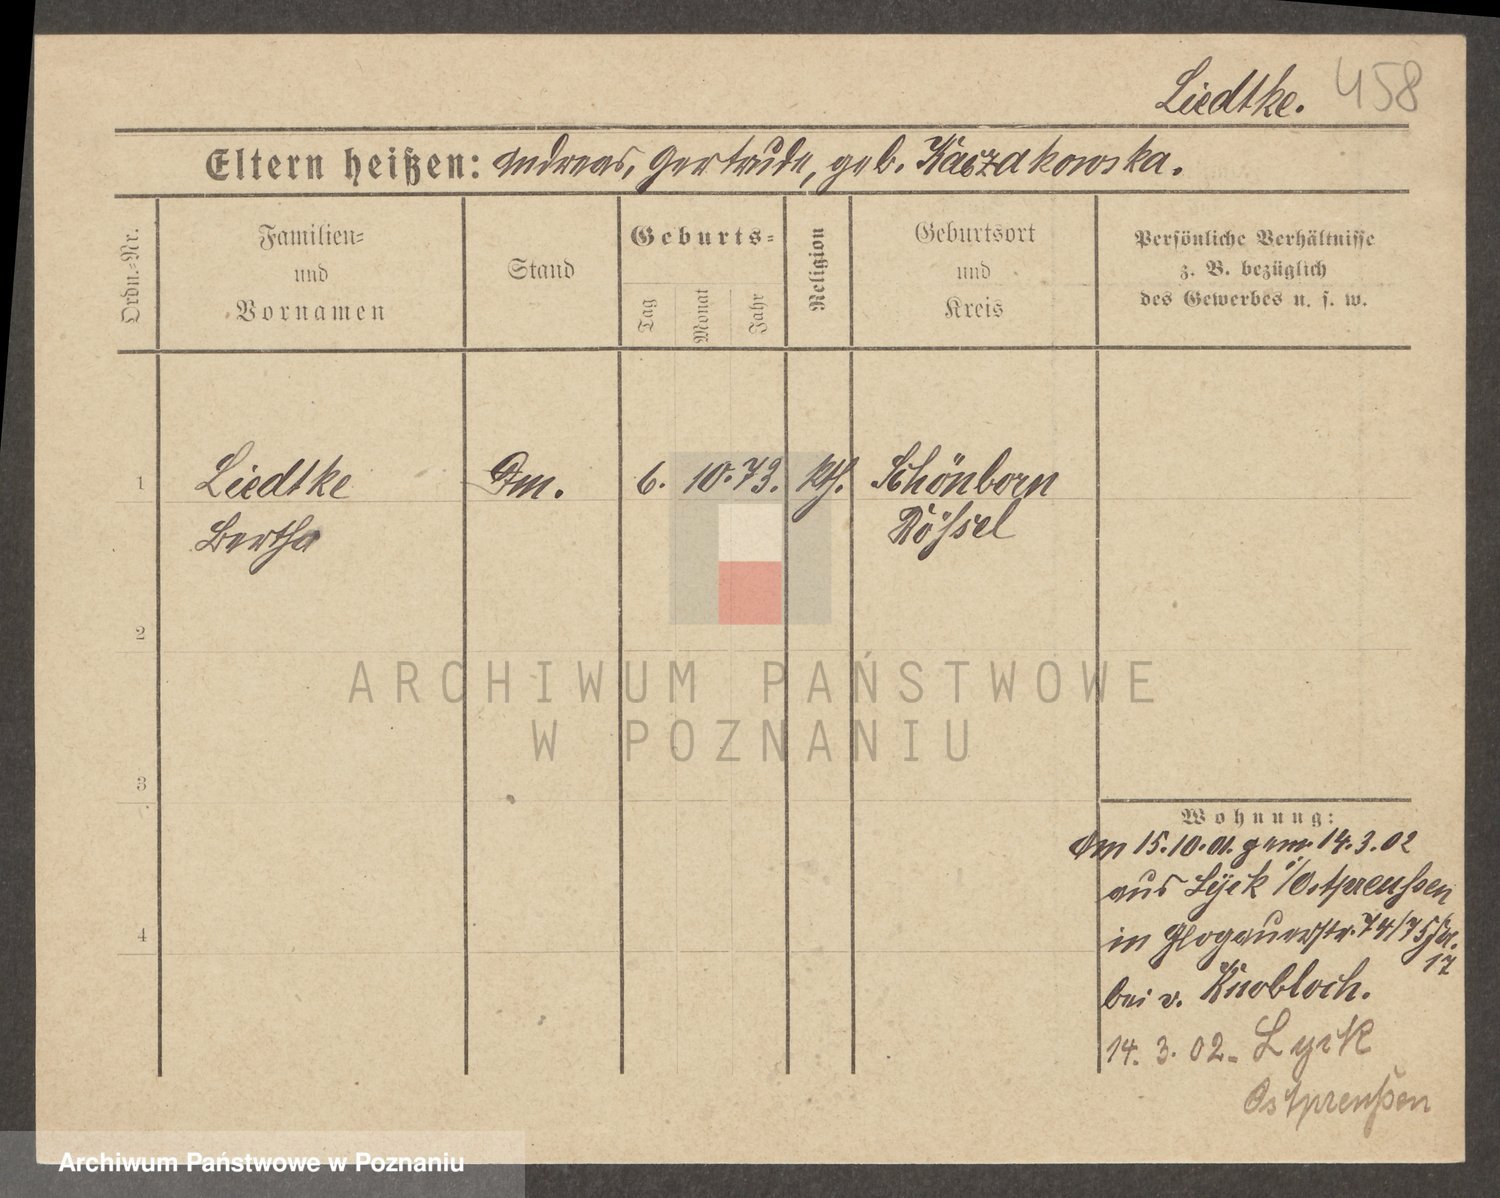 Liedtke. 458
Eltern heißen: Andreas, Gertrude, geb. Kaszakowska.
Ordn.-Nr.
Familien-
und
Vornamen
Stand
Geburts-
Tag
Monat
Jahr
Religion
Geburtsort
und
Kreis
Persönliche Verhältnisse
z. B. bezüglich
des Gewerbes u. s. w.
1 Liedtke Dm. 6. 10. 73. kth. Schönborn
Bertha Rößel
2
3
4
Wohnung:
Am 15.10.01. gem. 14.3.02
aus Lyck i/Ostpreußen
in Glogauerstr. 74/75
17
bei v. Knobloch.
14. 3. 02. Lyck
Ostpreußen
ARCHIWUM PAŃSTWOWE
W POZNANIU
Archiwum Państwowe w Poznaniu